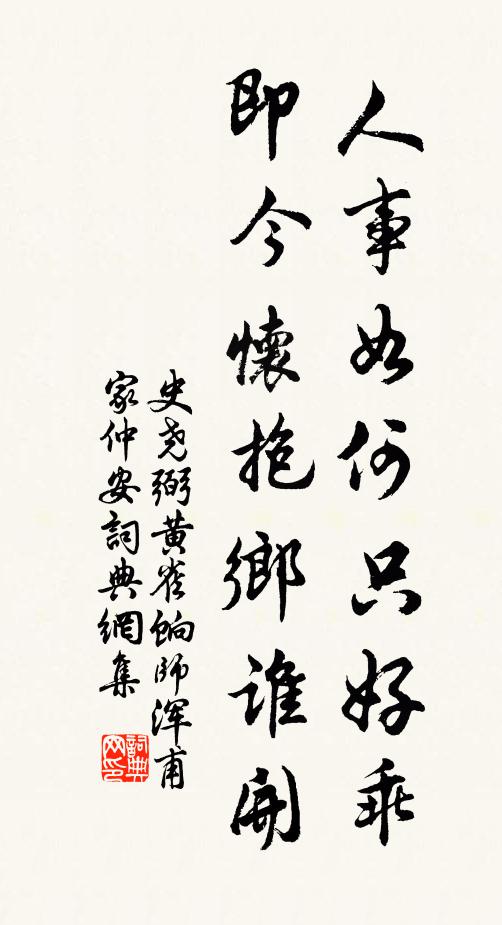 人事如何只好乖
即今懷抱鄉誰開
史堯弼黃雀餉師渾甫
家仲安詞典網集
詞典
网印